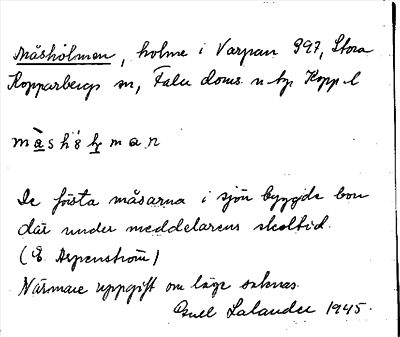 Måsholmen, holme i Varpan 997, Stora
Kopparbergs sn, Falu doms. o hp Kopp. l
De första måsarna i sjön byggde bon
där under meddelarens skoltid.
(E. Aspenström)
Närmare uppgift om läge saknas.
Gull Lalander 1945.